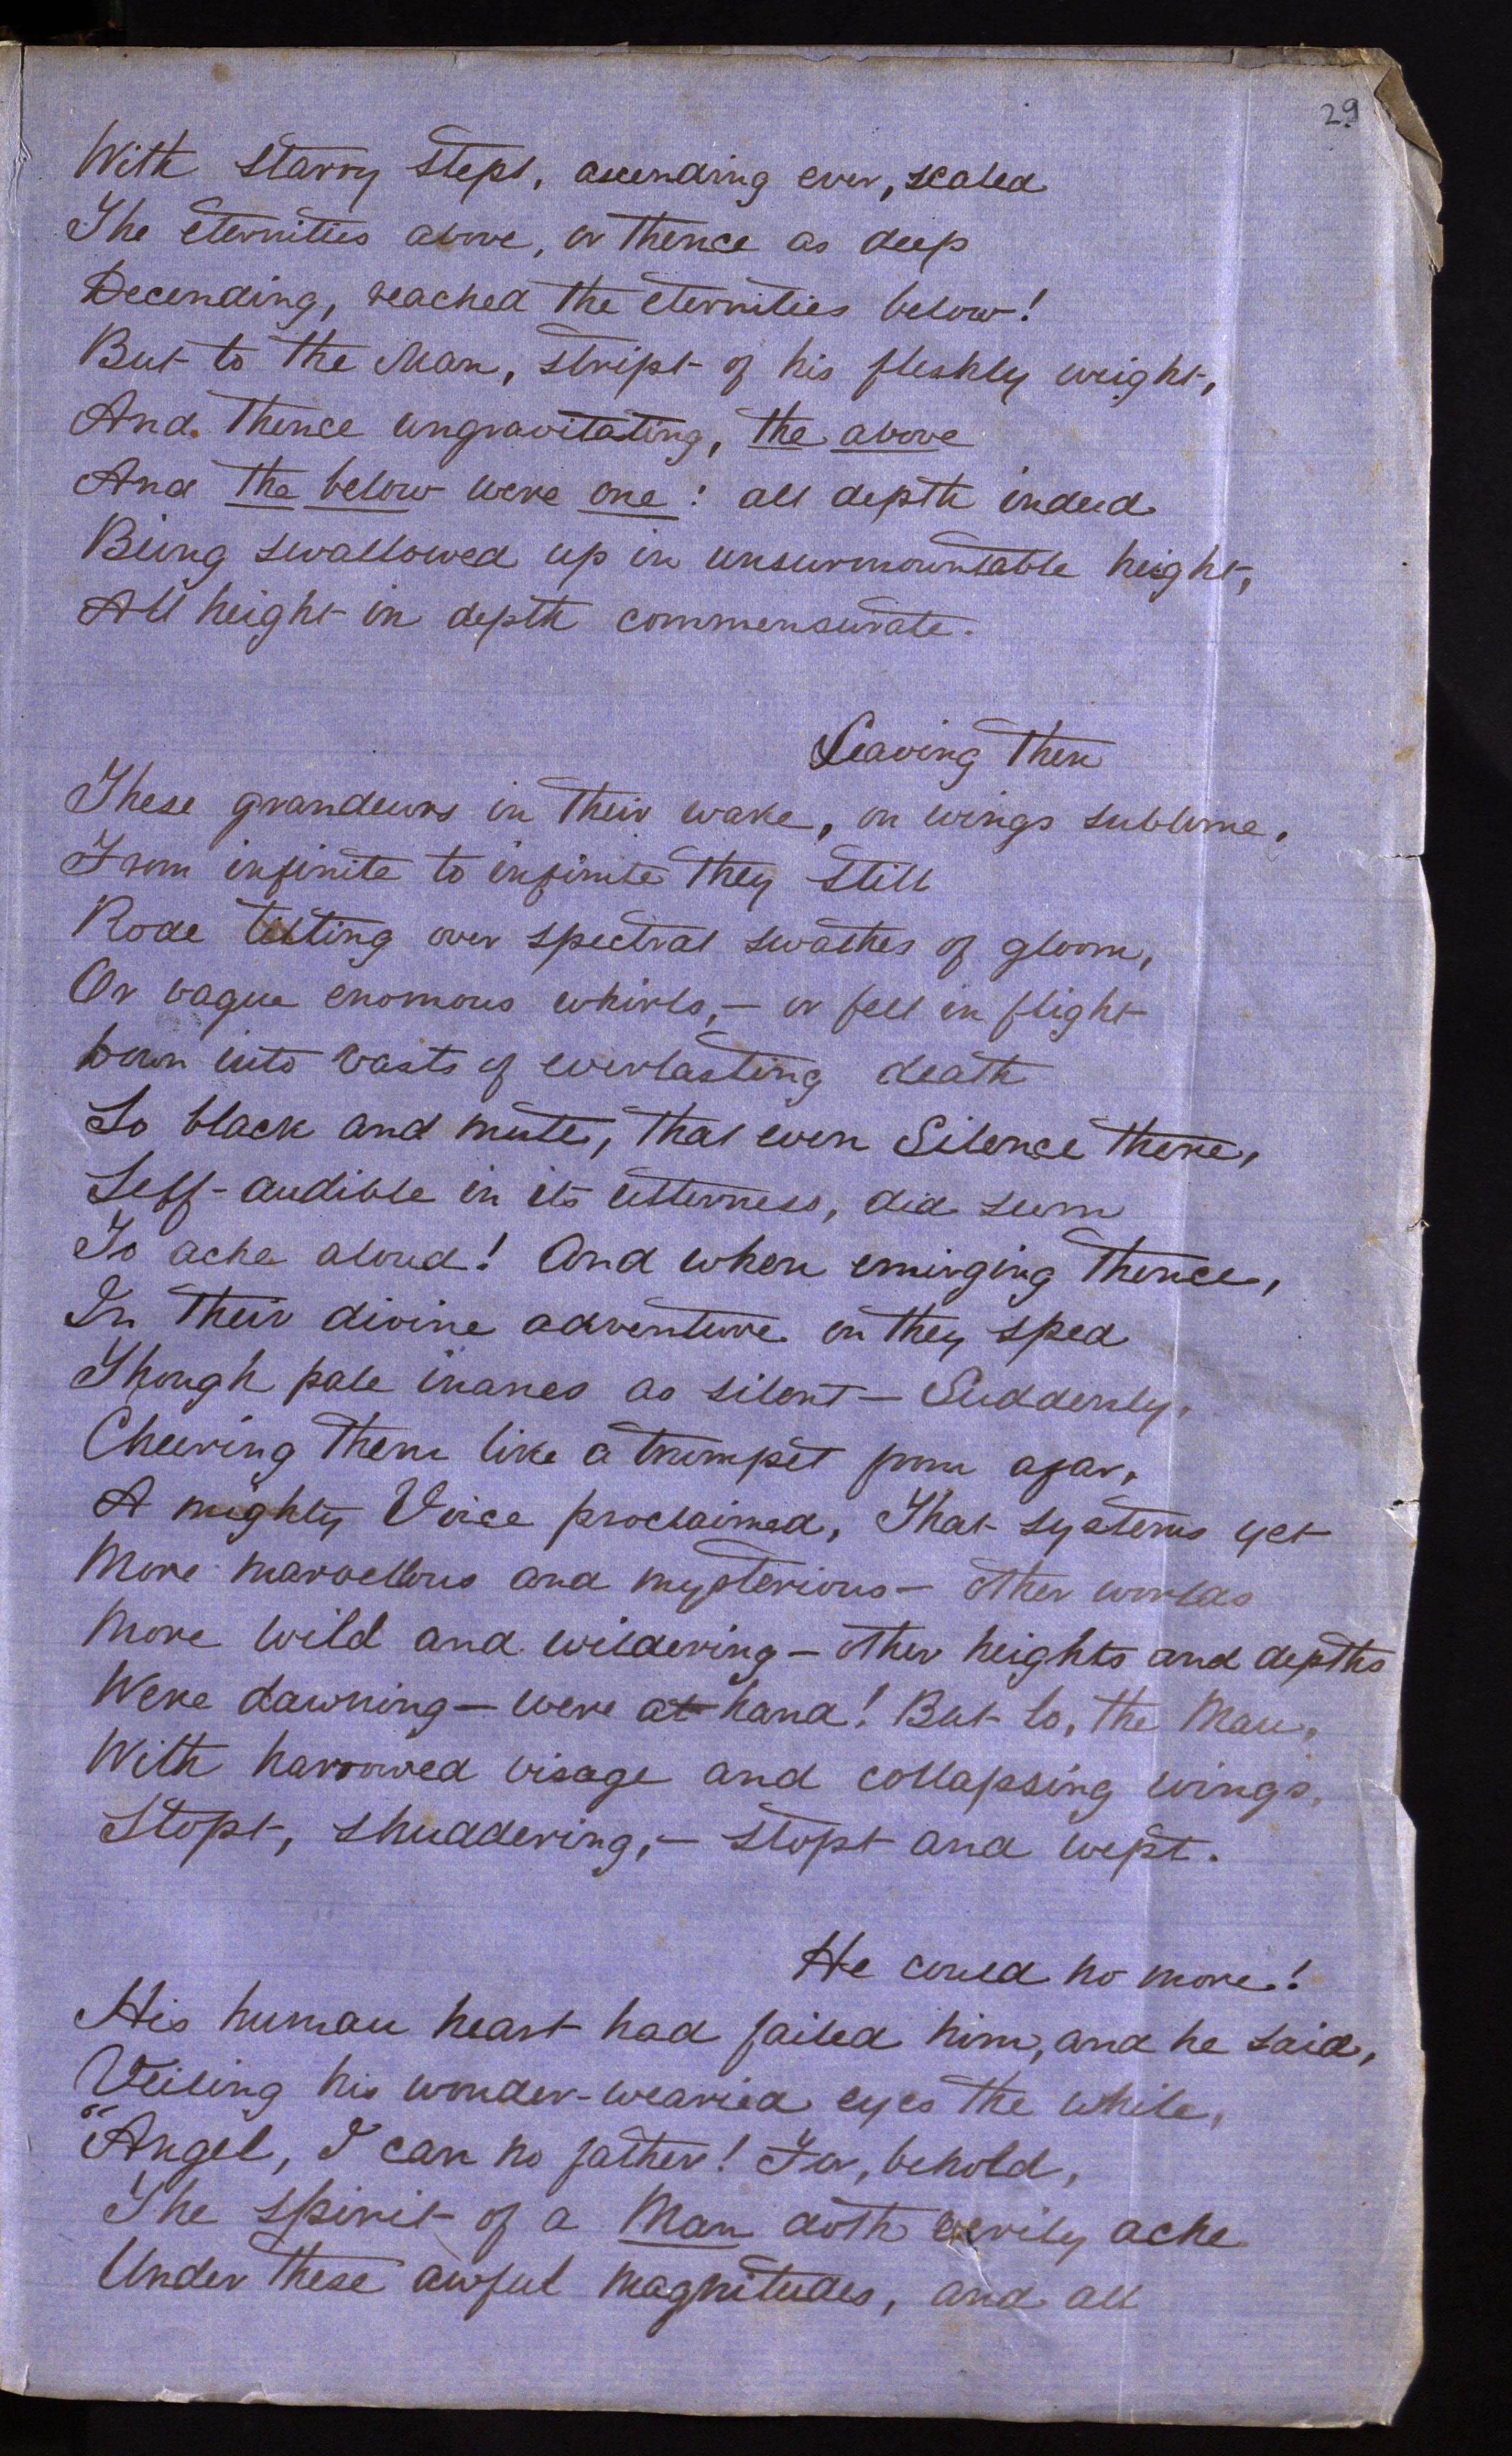 29
With starry steps, ascending ever, scaled
The eternities above, or thence as deep
Decending, reached the eternities below!
But to the Man, stript of his fleshly weight,
And thence ungravitating, the above
And the below were one: all depth indeed
Being swallowed up in unsurmountable height,
All height in depth commensurate.
Leaving then
These grandeurs in their wake, on wings sublime,
From infinite to infinite they still
Rode tilting over spectral swathes of gloom,
Or vague enomous whirls,— or fell in flight
Down into vasts of everlasting death
So black and mute, that even Silence there,
Self-audible in its utterness, did seem
To ache aloud! And when emerging thence,
In their divine adventure on they sped
Though pale inanes as silent — Suddenly,
Cheering them like a trumpet from afar,
A mighty Voice proclaimed, That systems yet
More marvellous and mysterious — other worlds
More wild and wildering — other heights and depths
Were dawning — were at hand! But lo, the Man,
With harrowed visage and collapsing wings,
Stopt, shuddering,— stopt and wept.
He could no more!
His human heart had failed him, and he said,
Veiling his wonder-wearied eyes the while,
"Angel, I can no father! For, behold,
The spirit of a Man doth verily ache
Under these awful magnitudes, and all